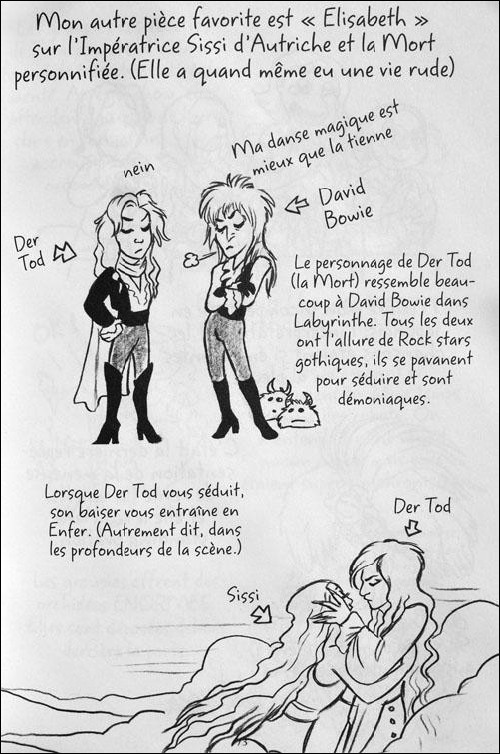 Mon autre pièce favorite est « Elisabeth »
sur l'Impératrice Sissi d'Autriche et la Mort
personnifiée. (Elle a quand même eu une vie rude)
nein
Ma danse magique est
mieux que la tienne
Der
Tod
David
Bowie
Le personnage de Der Tod
(la Mort) ressemble beau-
coup à David Bowie dans
Labyrinthe. Tous les deux
ont l'allure de Rock stars
gothiques, ils se pavanent
pour séduire et sont
démoniaques.
Lorsque Der Tod vous séduit,
son baiser vous entraîne en
Enfer. (Autrement dit, dans
les profondeurs de la scène.)
Der Tod
Sissi